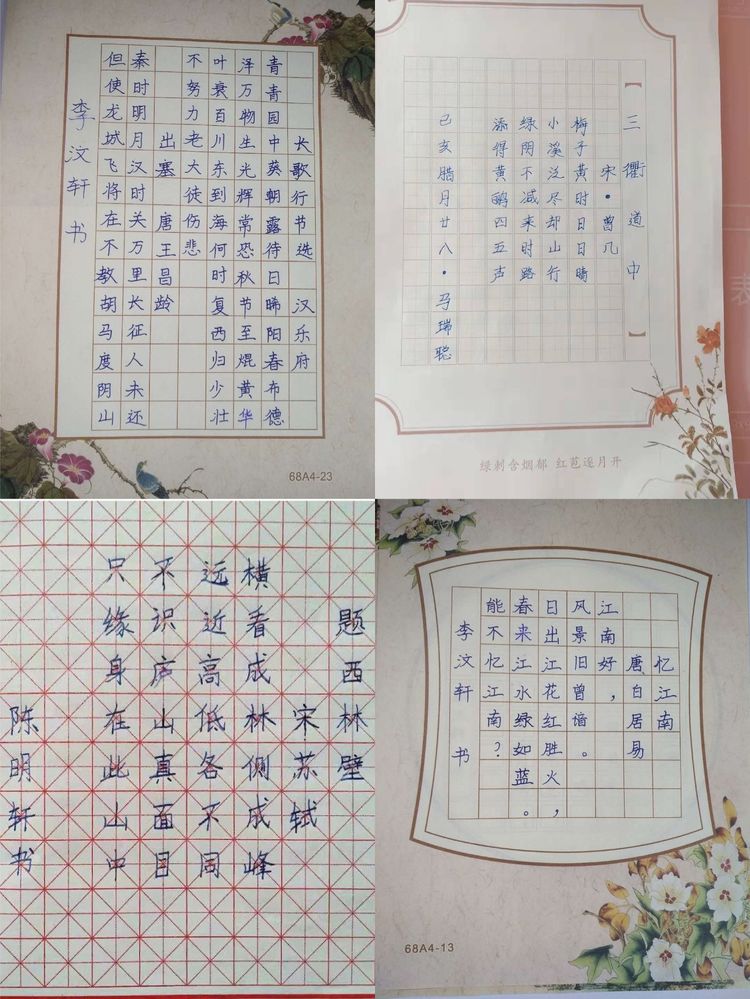 长歌行节选 汉乐府
青青园中葵朝露待日晞阳春布德
泽万物生光辉常恐秋节至焜黄华
叶衰百川东到海何时复西归少壮
不努力老大徒伤悲
出塞 唐王昌龄
秦时明月汉时关万里长征人未还
但使龙城飞将在不教胡马度阴山
李汶轩书
68A4-23
【三衢道中】
宋·曾几
梅子黄时日日晴
小溪泛尽却山行
绿阴不减来时路
添得黄鹂四五声
己亥腊月廿八·马瑞聪
绿刺含烟郁 红苞逐月开
题西林壁
宋苏轼
横看成林侧成峰
远近高低各不同
不识庐山真面目
只缘身在此山中
陈明轩书
忆江南
唐白居易
江南好，
风景旧曾谙。
日出江花红胜火，
春来江水绿如蓝。
能不忆江南？
李汶轩 书
68A4-13